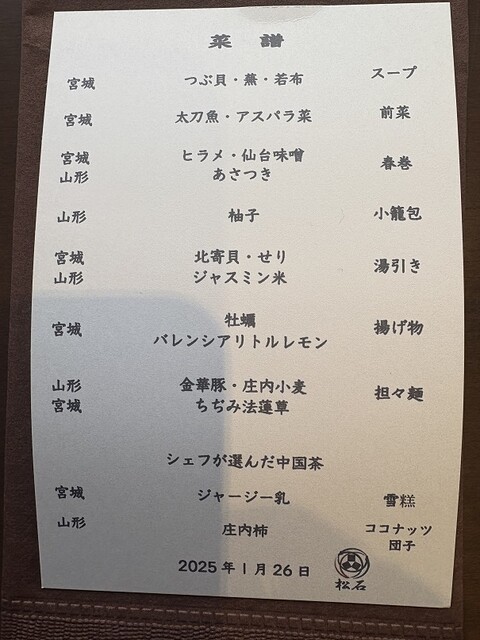 菜譜
宮城 つぶ貝・蕪・若布 スープ
宮城 太刀魚・アスパラ菜 前菜
宮城 ヒラメ・仙台味噌 春巻
山形 あさつき
山形 柚子 小籠包
宮城 北寄貝・せり 湯引き
山形 ジャスミン米
宮城 牡蠣 揚げ物
バレンシアリトルレモン
山形 金華豚・庄内小麦 担々麺
宮城 ちぢみ法蓮草
シェフが選んだ中国茶
宮城 ジャージー乳 雪糕
山形 庄内柿 ココナッツ
団子
2025年1月26日 松石